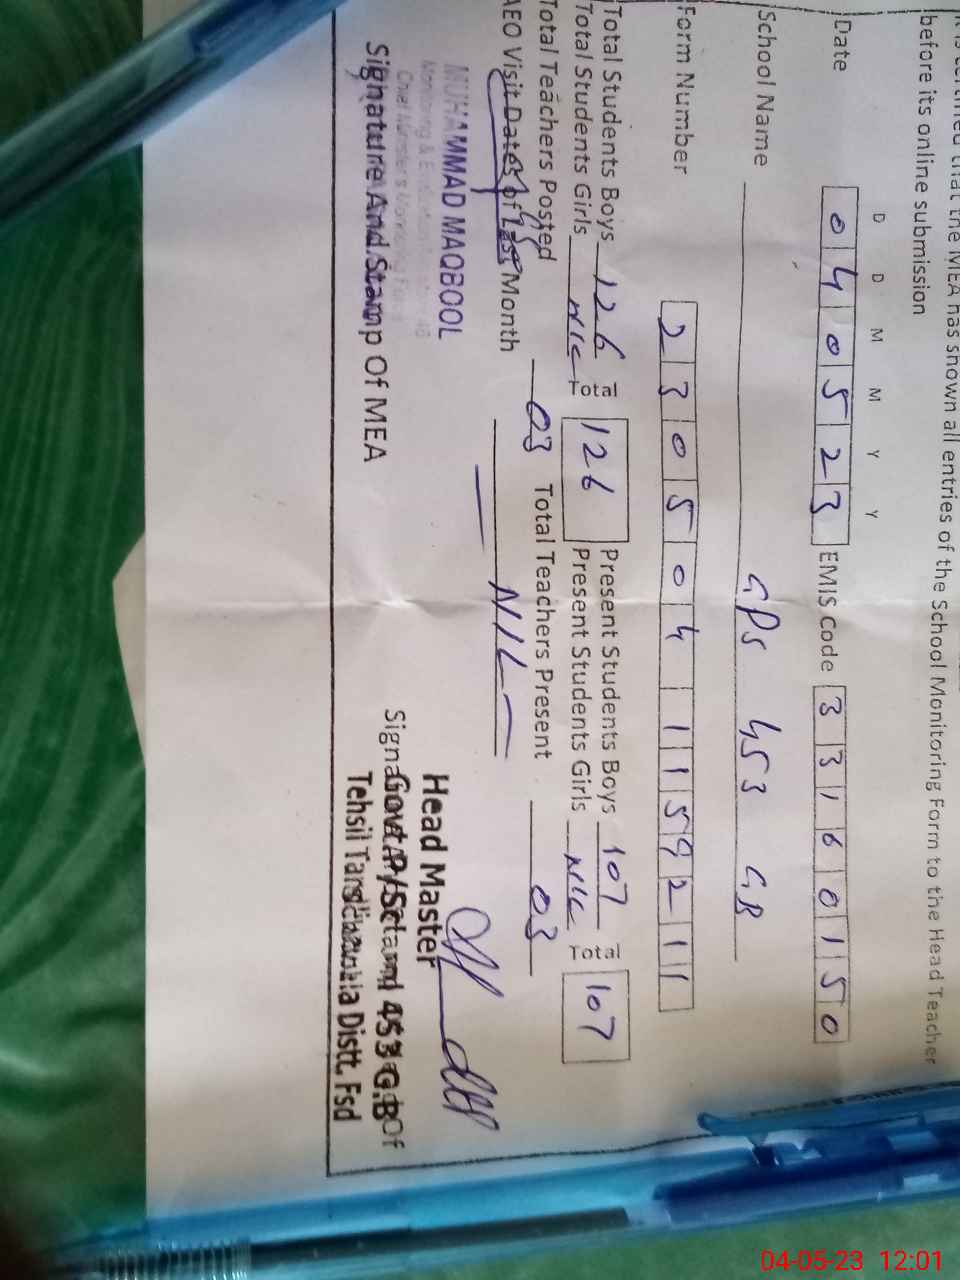 It is certified that the MEA has shown all entries of the School Monitoring Form to the Head Teacher
before its online submission
D D M M Y Y
Date 0 4 0 5 2 3 EMIS Code 3 3 1 6 0 1 5 0
School Name GPS 453 GB
Form Number 2 3 0 5 0 4 1 1 5 9 2 1 1
Total Students Boys 126 Total 126 Present Students Boys 107 Total 107
Total Students Girls NIL Present Students Girls NIL
Total Teachers Posted 03 Total Teachers Present 03
AEO Visit Dates of Last Month — NIL —
MUHAMMAD MAQBOOL
Monitoring &
Chief Minister's Monitoring Force
Signature And Stamp Of MEA
Head Master
Govt. P/S 453 G.B
Tehsil Tandlianwala Distt. Fsd
04-05-23 12:01